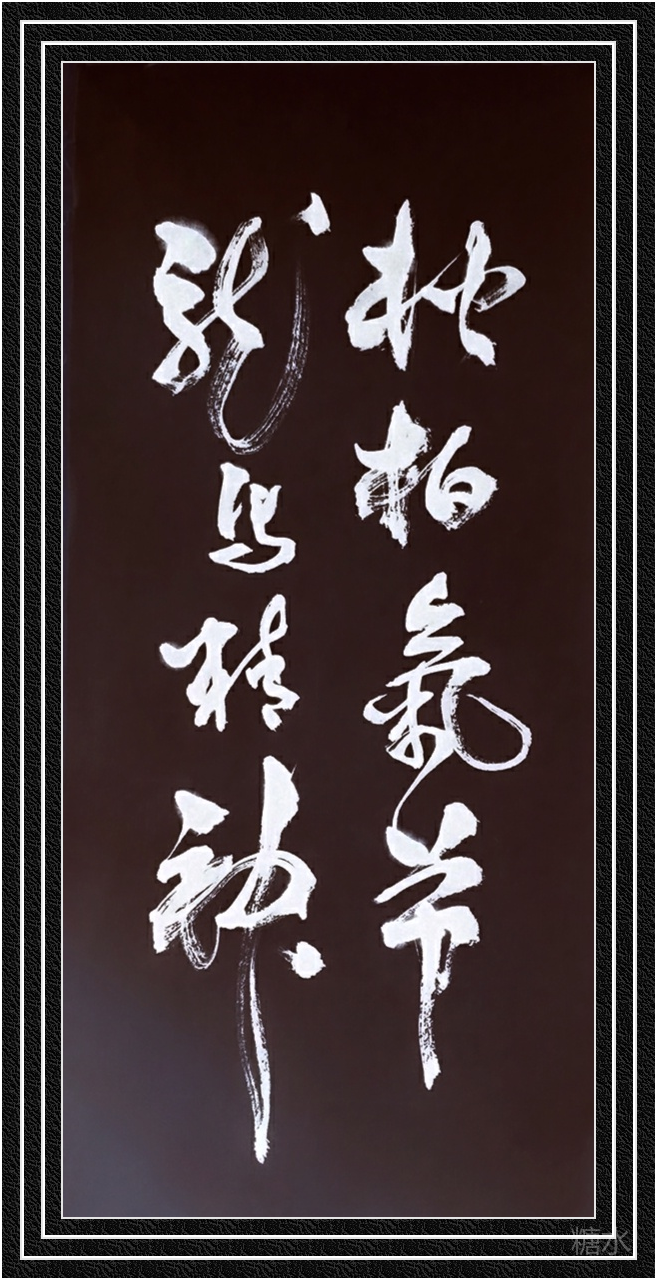 松柏氣节
龍馬精神
糖水